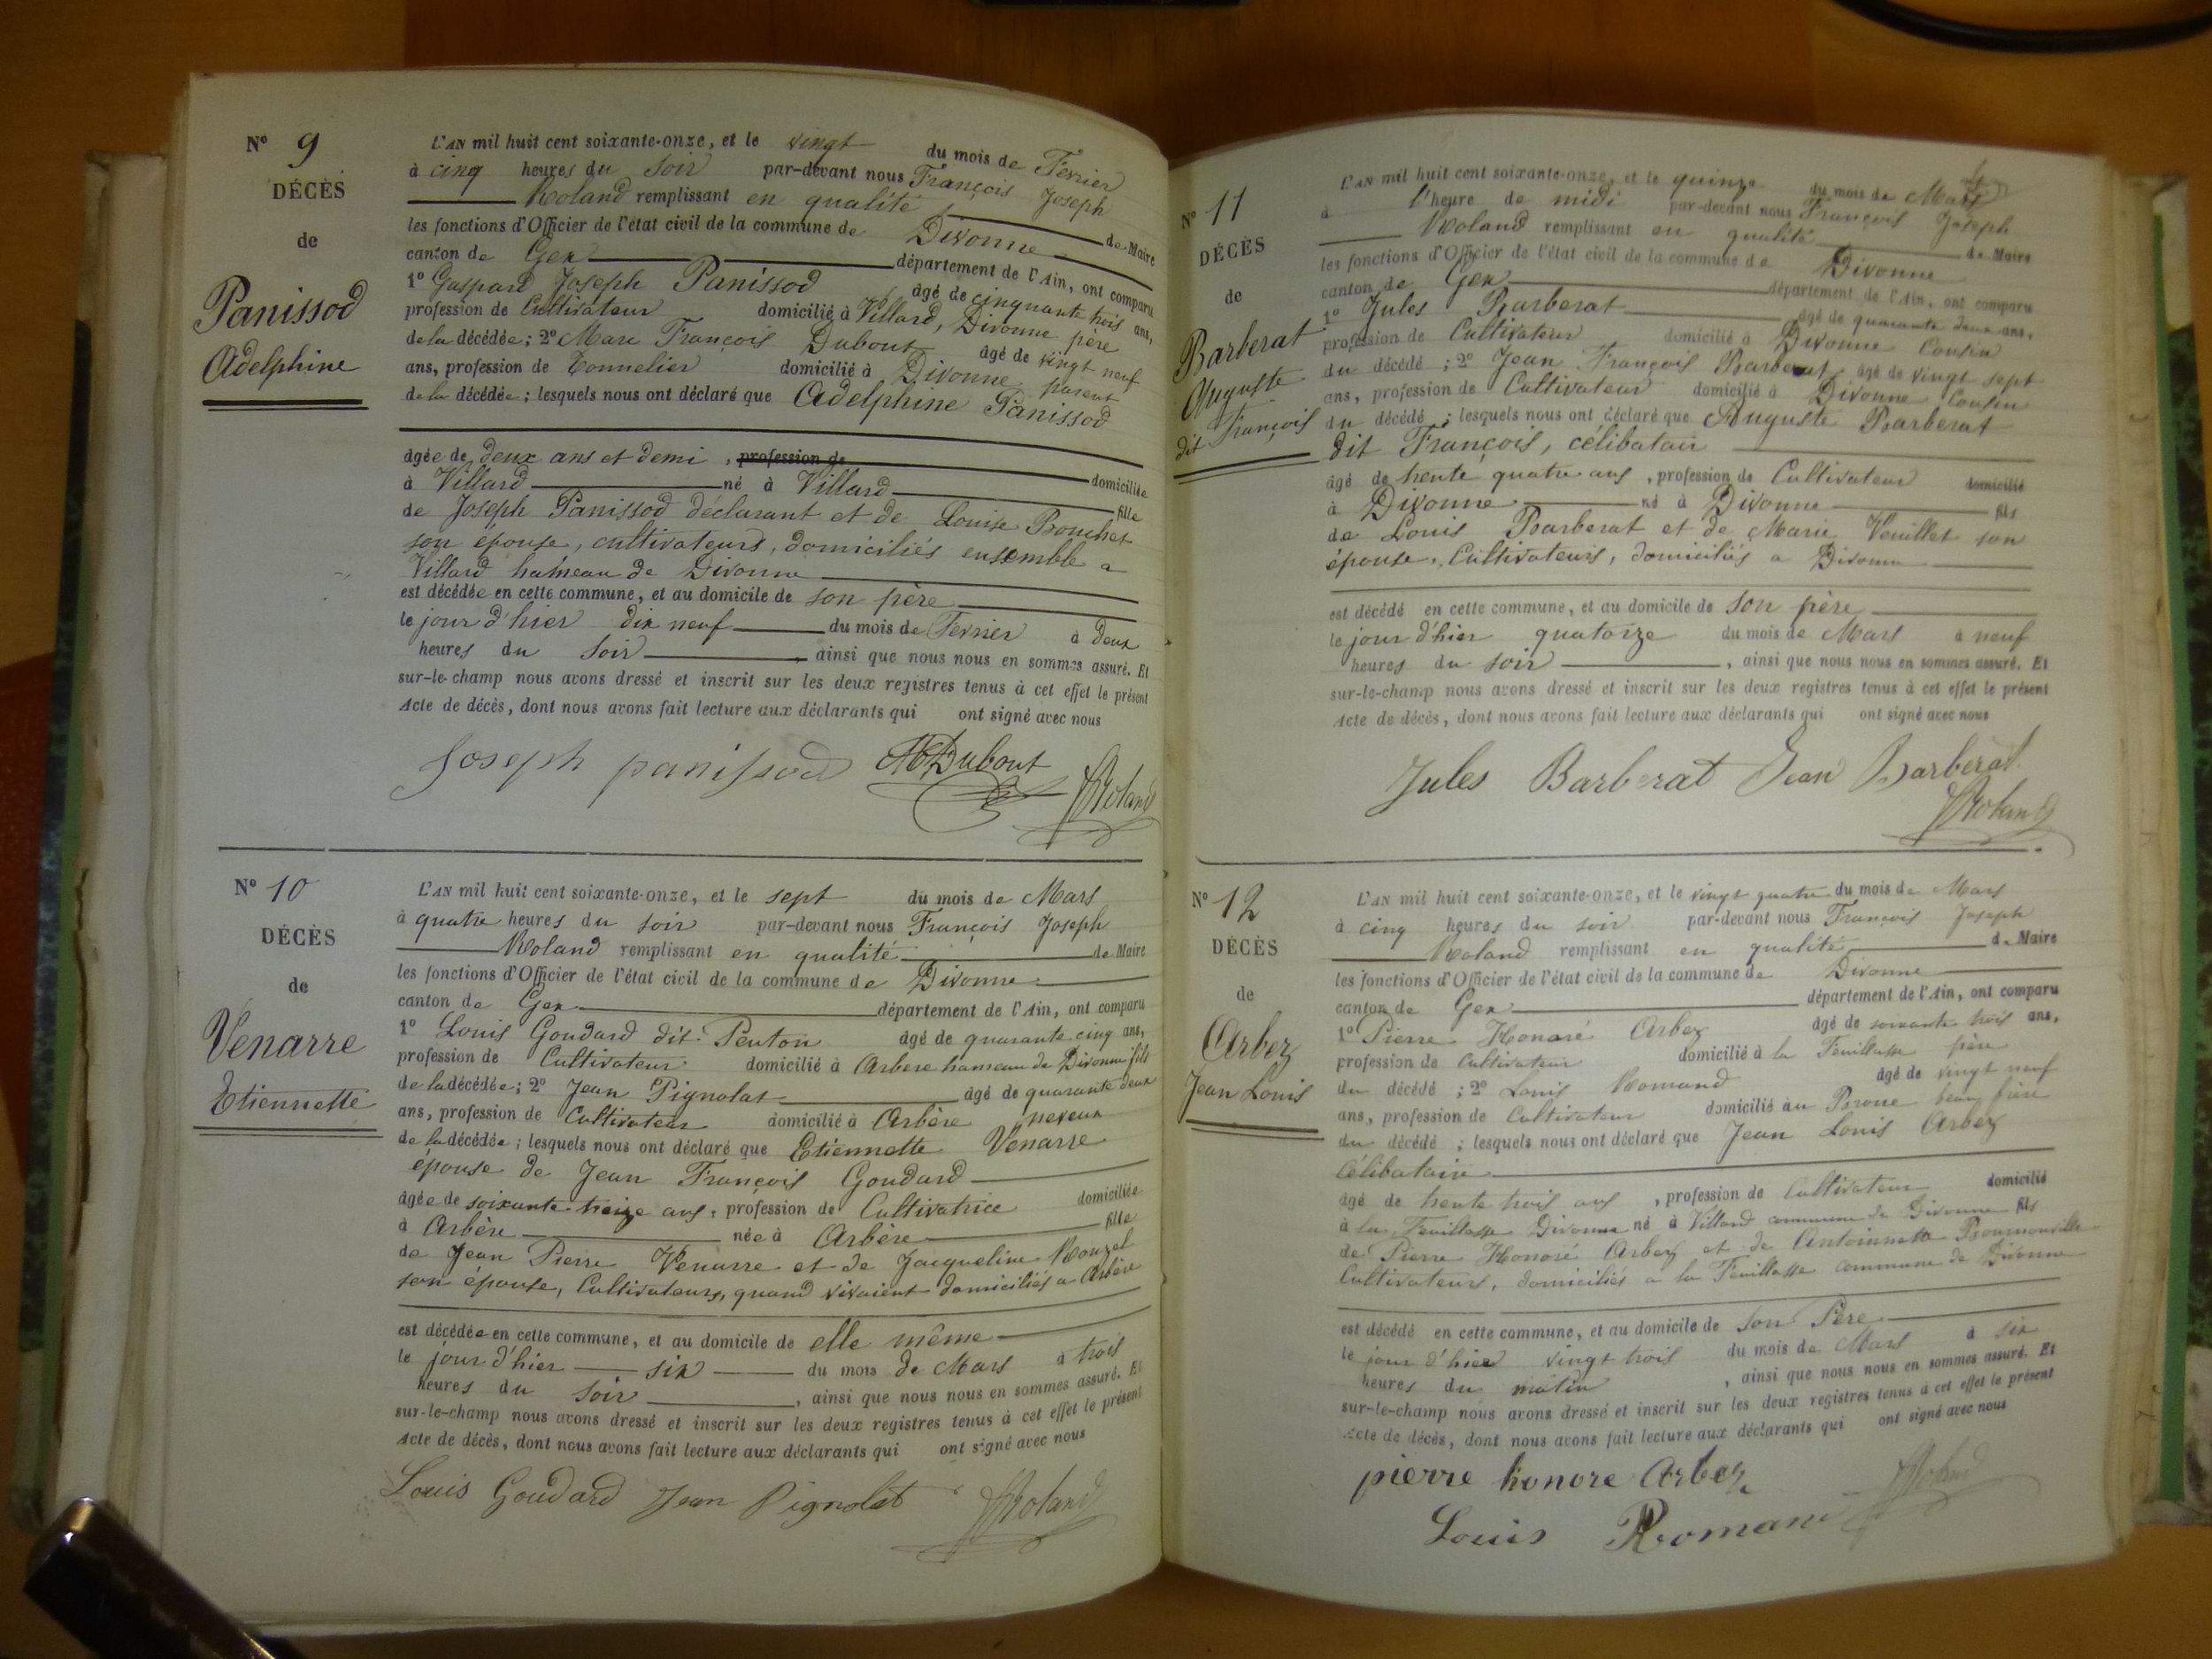 N° 9
DÉCÈS
de
Panissod
Adelphine
L'AN mil huit cent soixante-onze, et le vingt du mois de Fevrier
à cinq heures du soir par-devant nous François Joseph
Roland remplissant en qualité de Maire
les fonctions d'Officier de l'état civil de la commune de Divonne
canton de Gex département de l'Ain, ont comparu
1° Gaspard Joseph Panissod âgé de cinquante trois ans,
profession de Cultivateur domicilié à Villard, Divonne père
de la décédée; 2° Marc François Dubout âgé de vingt neuf
ans, profession de Tonnelier domicilié à Divonne parent
de la décédée; lesquels nous ont déclaré que Adelphine Panissod
âgée de deux ans et demi, profession de domiciliée
à Villard né à Villard fille
de Joseph Panissod déclarant et de Louise Bouchet
son épouse, cultivateurs, domiciliés ensemble a
Villard hameau de Divonne
est décédée en cette commune, et au domicile de son père
le jour d'hier dix neuf du mois de Fevrier à deux
heures du soir, ainsi que nous nous en sommes assuré. Et
sur-le-champ nous avons dressé et inscrit sur les deux registres tenus à cet effet le présent
Acte de décès, dont nous avons fait lecture aux déclarants qui ont signé avec nous
Joseph panissod Dubout Roland
N° 10
DÉCÈS
de
Venarre
Etiennette
L'AN mil huit cent soixante-onze, et le sept du mois de Mars
à quatre heures du soir par-devant nous François Joseph
Roland remplissant en qualité de Maire
les fonctions d'Officier de l'état civil de la commune de Divonne
canton de Gex département de l'Ain, ont comparu
1° Louis Goudard dit Penton âgé de quarante cinq ans,
profession de Cultivateur domicilié à Arbere hameau de Divonne fils
de la décédée; 2° Jean Pignolat âgé de quarante deux
ans, profession de Cultivateur domicilié à Arbère neveux
de la décédée; lesquels nous ont déclaré que Etiennette Venarre
épouse de Jean François Goudard
âgée de soixante treize ans, profession de Cultivatrice domiciliée
à Arbère née à Arbère fille
de Jean Pierre Venarre et de Jacqueline Rouzel
son épouse, Cultivateurs, quand vivaient domiciliés a Arbère
est décédée en cette commune, et au domicile de elle même
le jour d'hier six du mois de Mars à trois
heures du soir, ainsi que nous nous en sommes assuré. Et
sur-le-champ nous avons dressé et inscrit sur les deux registres tenus à cet effet le présent
Acte de décès, dont nous avons fait lecture aux déclarants qui ont signé avec nous
Louis Goudard Jean Pignolat Roland
N° 11
DÉCÈS
de
Barberat
Auguste
dit François
L'AN mil huit cent soixante-onze, et le quinze du mois de Mars
à l'heure de midi par-devant nous François Joseph
Roland remplissant en qualité de Maire
les fonctions d'Officier de l'état civil de la commune de Divonne
canton de Gex département de l'Ain, ont comparu
1° Jules Barberat âgé de quarante deux ans,
profession de Cultivateur domicilié à Divonne Cousin
du décédé; 2° Jean François Barberat âgé de vingt sept
ans, profession de Cultivateur domicilié à Divonne Cousin
du décédé; lesquels nous ont déclaré que Auguste Barberat
dit François, célibatair
âgé de trente quatre ans, profession de Cultivateur domicilié
à Divonne né à Divonne fils
de Louis Barberat et de Marie Veuillet son
épouse, Cultivateurs, domiciliés a Divonne
est décédé en cette commune, et au domicile de son père
le jour d'hier quatorze du mois de Mars à neuf
heures du soir, ainsi que nous nous en sommes assuré. Et
sur-le-champ nous avons dressé et inscrit sur les deux registres tenus à cet effet le présent
Acte de décès, dont nous avons fait lecture aux déclarants qui ont signé avec nous
Jules Barberat Jean Barberat
Roland
N° 12
DÉCÈS
de
Arbez
Jean Louis
L'AN mil huit cent soixante-onze, et le vingt quatre du mois de Mars
à cinq heures du soir par-devant nous François Joseph
Roland remplissant en qualité de Maire
les fonctions d'Officier de l'état civil de la commune de Divonne
canton de Gex département de l'Ain, ont comparu
1° Pierre Honoré Arbez âgé de soixante trois ans,
profession de Cultivateur domicilié à la Feuillasse père
du décédé; 2° Louis Romand âgé de vingt neuf
ans, profession de Cultivateur domicilié au beau frère
du décédé; lesquels nous ont déclaré que Jean Louis Arbez
Célibataire
âgé de trente trois ans, profession de Cultivateur domicilié
à la Feuillasse Divonne né à Villard commune de Divonne fils
de Pierre Honoré Arbez et de Antoinette
Cultivateurs, domiciliés a la Feuillasse commune de Divonne
est décédé en cette commune, et au domicile de son Père
le jour d'hier vingt trois du mois de Mars à six
heures du matin, ainsi que nous nous en sommes assuré. Et
sur-le-champ nous avons dressé et inscrit sur les deux registres tenus à cet effet le présent
Acte de décès, dont nous avons fait lecture aux déclarants qui ont signé avec nous
pierre honore Arbez Roland
Louis Romand